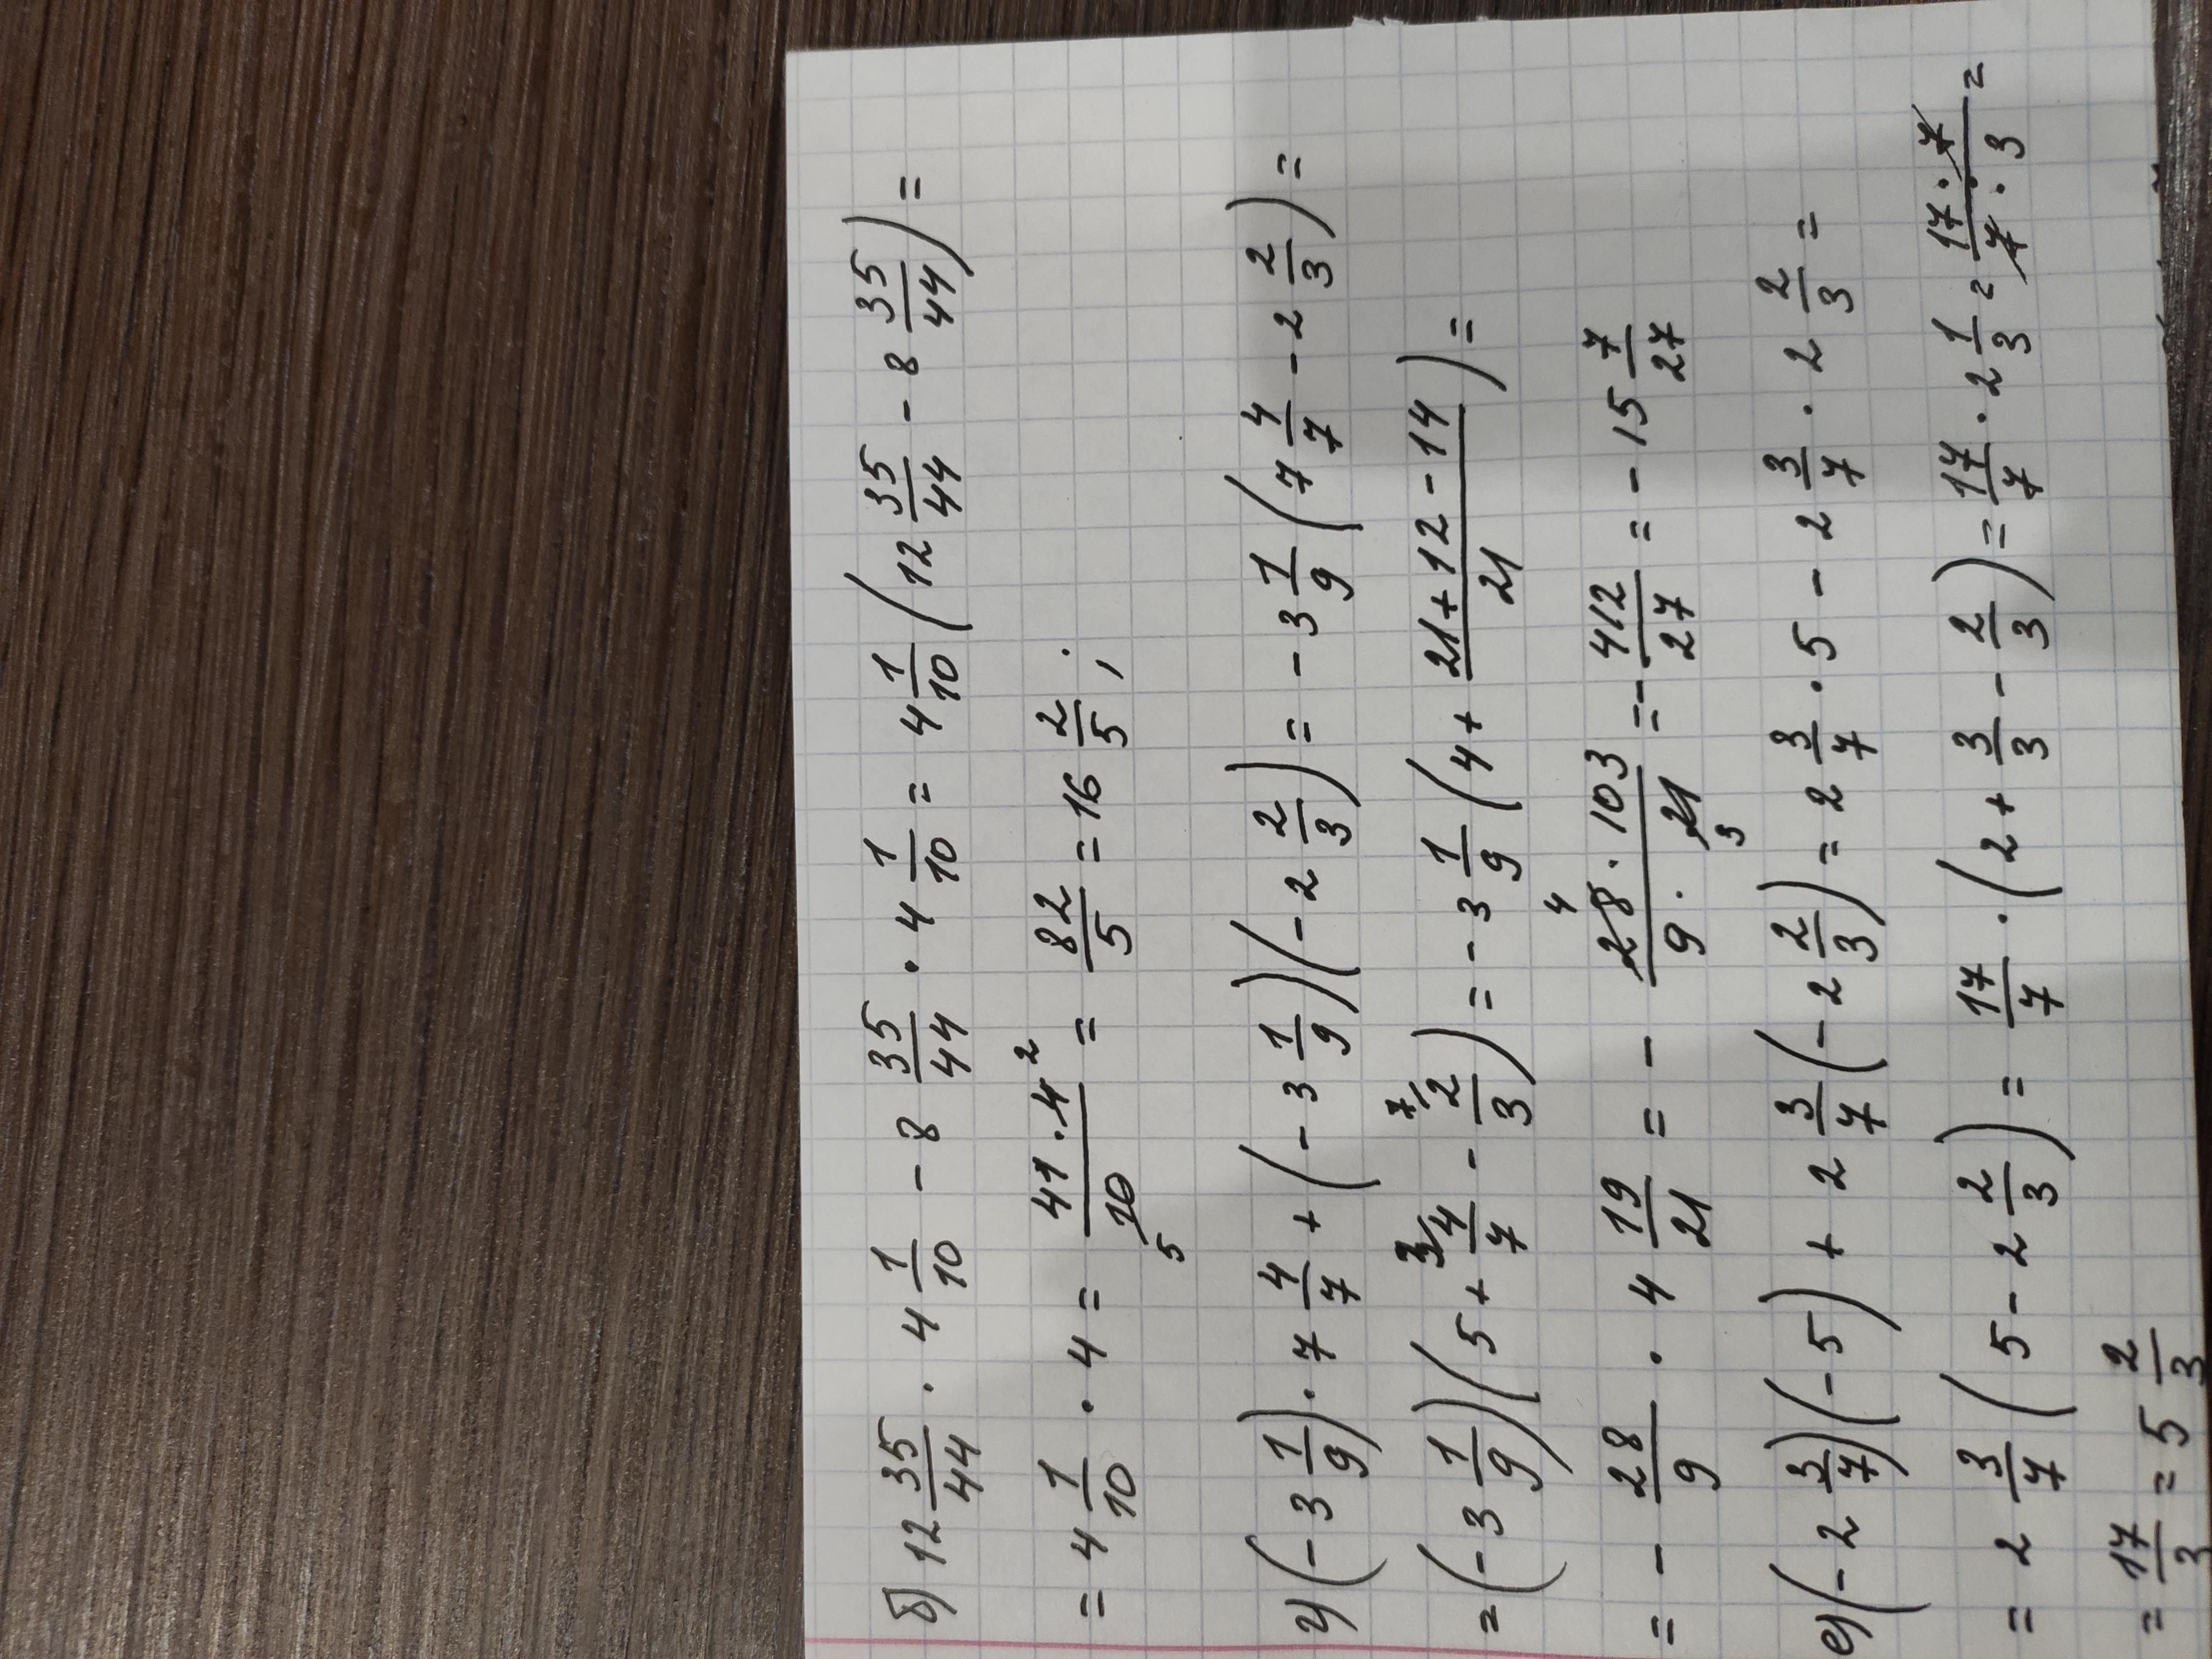 б) 12 35/44 · 4 1/10 - 8 35/44 · 4 1/10 = 4 1/10 (12 35/44 - 8 35/44) =
= 4 1/10 · 4 = 41 · 4 2 / 10 5 = 82/5 = 16 2/5 ;
г) (-3 1/9) · 7 4/7 + (-3 1/9)(-2 2/3) = -3 1/9 (7 4/7 - 2 2/3) =
= (-3 1/9)(5 + 3/ 4/7 - 7/ 2/3) = -3 1/9 (4 + 21 + 12 - 14 / 21) =
= - 28/9 · 4 19/21 = - 28 4 · 103 / 9 · 21 3 = - 412/27 = - 15 7/27
е) (-2 3/7)(-5) + 2 3/7 (-2 2/3) = 2 3/7 · 5 - 2 3/7 · 2 2/3 =
= 2 3/7 (5 - 2 2/3) = 17/7 · (2 + 3/3 - 2/3) = 17/7 · 2 1/3 = 17 · 7 / 7 · 3 =
= 17/3 = 5 2/3